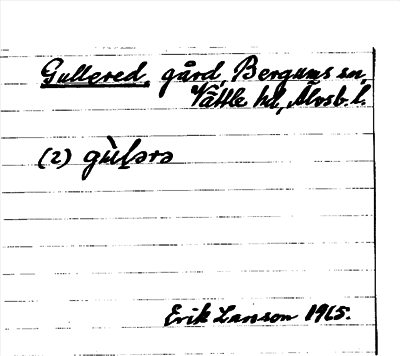 Gullered, gård, Bergums sn,
Vättle hd, Älvsb. l.
(2) gùḷərə
Erik Larsson 1965.